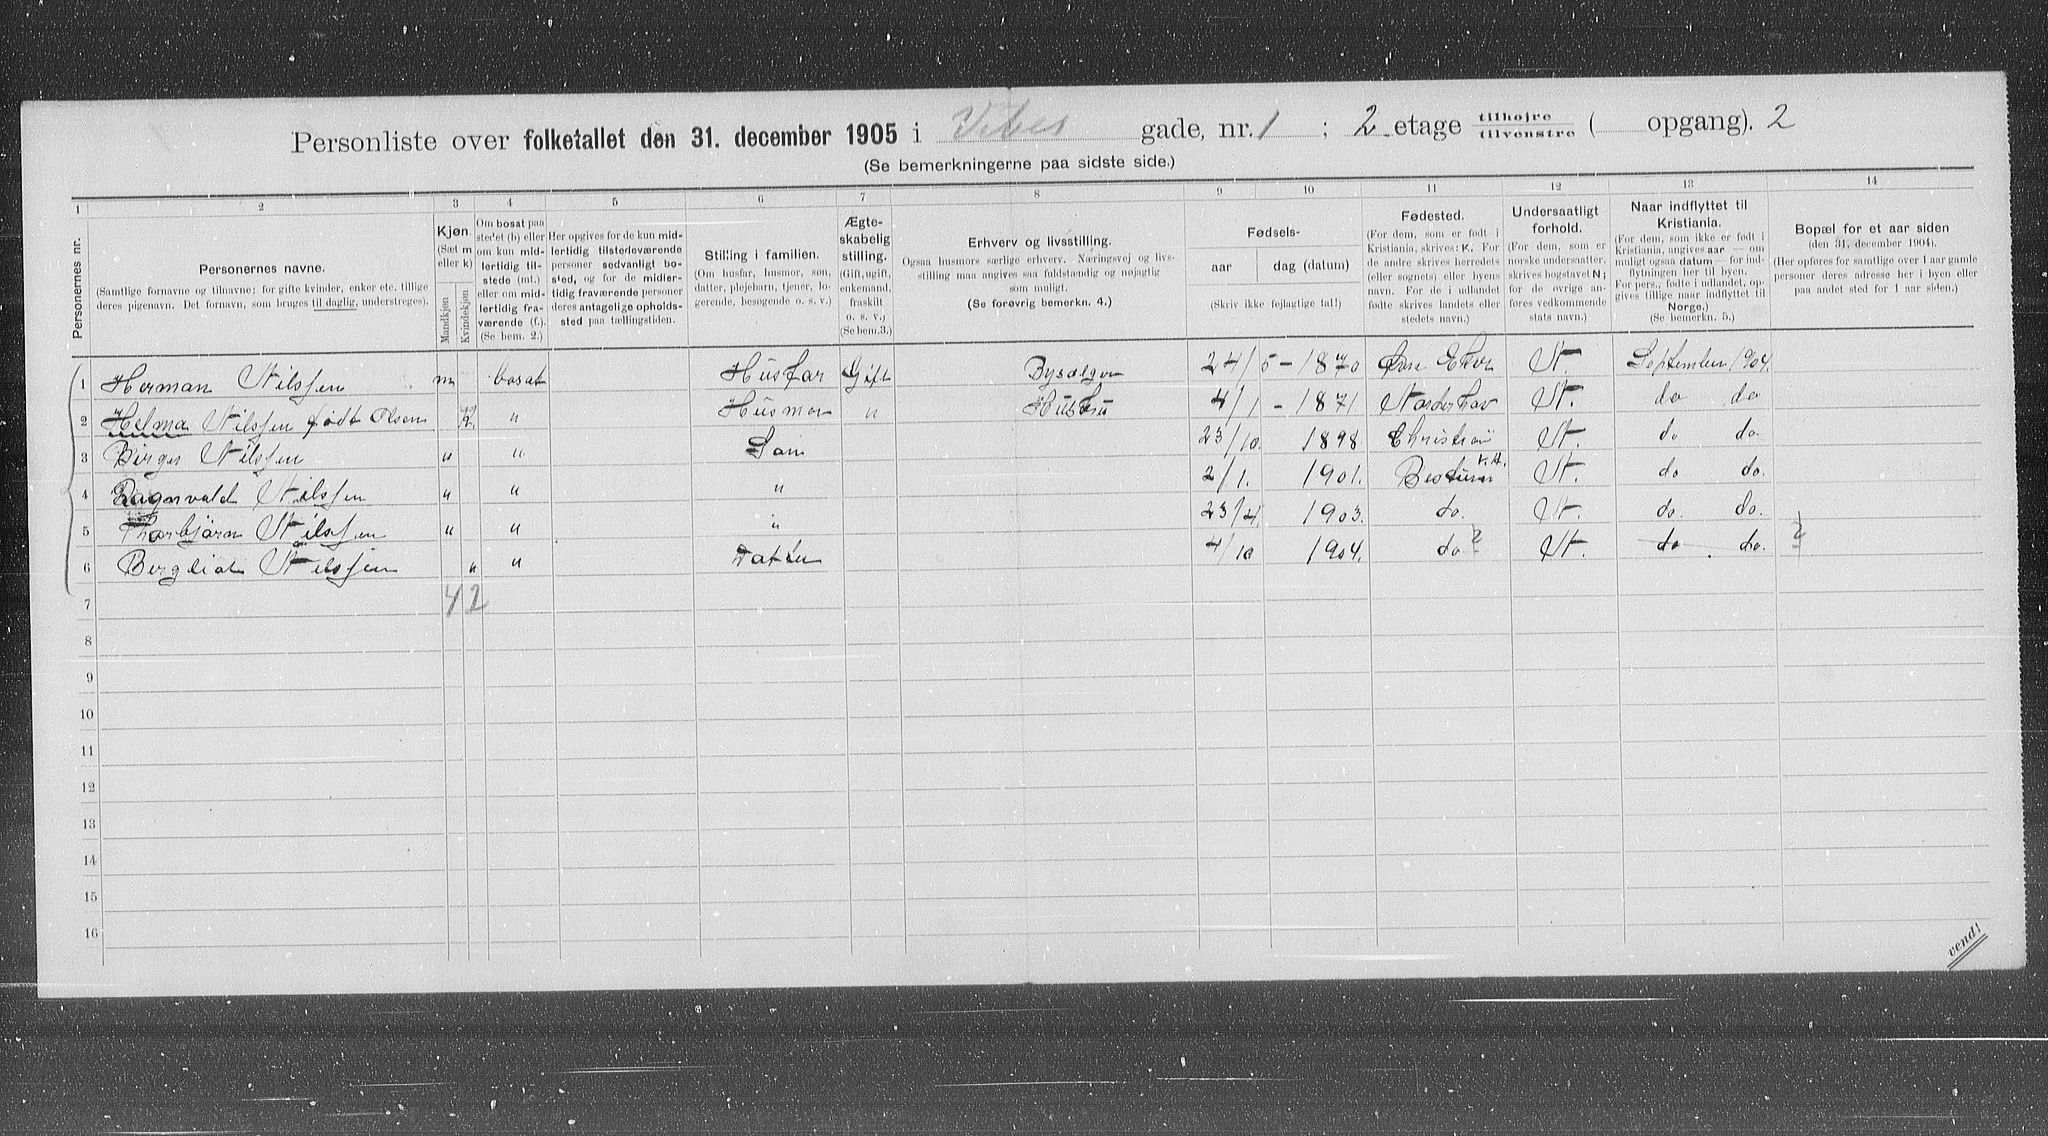 Personliste over folketallet den 31. december 1905 i Vibes gade, nr. 1 ; 2 etage tilhøjre tilvenstre ( opgang). 2
(Se bemerkningerne paa sidste side.)
1 2 3 4 5 6 7 8 9 10 11 12 13 14
Personernes nr.
Personernes navne.
(Samtlige fornavne og tilnavne; for gifte kvinder, enker etc. tillige
deres pigenavn. Det fornavn, som bruges til daglig, understreges).
Kjøn.
(Sæt m
eller k)
Mandkjøn
Kvindekjøn
Om bosat paa
stedet (b) eller
om kun mid-
lertidig til-
stede (mt.)
eller om mid-
lertidig fra-
værende (f.).
(Se bem. 2.)
Her opgives for de kun mid-
lertidig tilstedeværende
personer sedvanligt bo-
sted, og for de midler-
tidig fraværende personer
deres antagelige opholds-
sted paa tællingstiden.
Stilling i familien.
(Om husfar, husmor, søn,
datter, plejebarn, tjener, lo-
gerende, besøgende o. s. v.)
Ægte-
skabelig
stilling.
(Gift, ugift,
enkemand,
fraskilt
o. s. v.)
(Se bem. 3.)
Erhverv og livsstilling.
Ogsaa husmors særlige erhverv. Næringsvej og livs-
stilling maa angives saa fuldstændig og nøjagtig
som muligt.
(Se forøvrig bemerkn. 4.)
Fødsels-
aar dag (datum)
(Skriv ikke fejlagtige tal!)
Fødested.
(For dem, som er født i
Kristiania, skrives: K. For
de andre skrives herredets
(eller sognets) eller byens
navn. For de i udlandet
fødte skrives landets eller
stedets navn.)
Undersaatligt
forhold.
(For dem, som er
norske undersaatter,
skrives bogstavet N;
for de øvrige an-
føres vedkommende
stats navn.)
Naar indflyttet til
Kristiania.
(For dem, som ikke er født i
Kristiania, angives aar — om
muligt ogsaa datum — for ind-
flytningen her til byen.
For pers., fødte i udlandet, op-
gives tillige naar indflyttet til
Norge.)
(Se bemerkn. 5.)
Bopæl for et aar siden
(den 31. december 1904).
(Her opføres for samtlige over 1 aar gamle
personer deres adresse her i byen eller
paa andet sted for 1 aar siden.)
1 Herman Nilssen m bosat Husfar Gift Bysælger 24/5 - 1870 Øvre Eker N. September 1904.
2 Helma Nilssen født Olsen k. " Husmor " Hustru 4/1 - 1871. Norderhov N. do do
3 Birger Nilssen " " Søn 23/10. 1898. N. do do.
4 Ragnvald Nilssen " " " 2/1. 1901. Bestum V.A. N. do do.
5 Thorbjørn Nilssen " " " 23/4. 1903. do. N. do. do.
6 Bergliot Nilssen " " Datter 4/10 1904. do ? N. do . do. ?
7 4 2
8
9
10
11
12
13
14
15
16
vend!